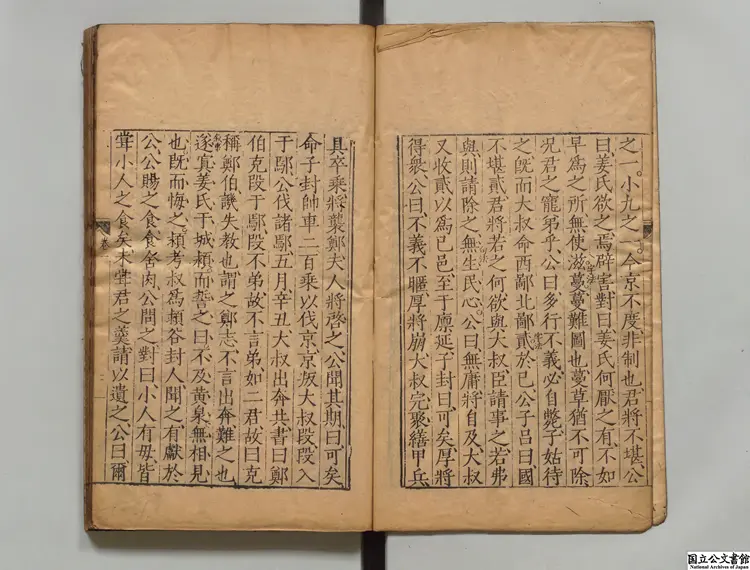 之一。小九之一。今京不度非制也君將不堪公
曰姜氏欲之焉辟害對曰姜氏何厭之有不如
早爲之所無使滋蔓蔓難圖也蔓草猶不可除
况君之寵弟乎公曰多行不義必自斃子姑待
之既而大叔命西鄙北鄙貳於已公子呂曰國
不堪貳君將若之何欲與大叔臣請事之若弗
與則請除之無生民心。公曰無庸將自及大叔
又收貳以爲已邑至于廪延子封曰可矣厚將
得衆公曰不義不暱厚將崩大叔完聚繕甲兵
具卒乘將襲鄭夫人將啓之公聞其期曰可矣
命子封帥車二百乘以伐京京叛大叔段段入
于鄢公伐諸鄢五月辛丑大叔出奔共書曰鄭
伯克段于鄢段不弟故不言弟如二君故曰克
稱鄭伯譏失教也謂之鄭志不言出奔難之也
遂寘姜氏于城潁而誓之曰不及黃泉無相見
也既而悔之潁考叔爲潁谷封人聞之有獻於
公公賜之食食舍肉公問之對曰小人有母皆
嘗小人之食矣未嘗君之羹請以遺之公曰爾
国立公文書館
National Archives of Japan